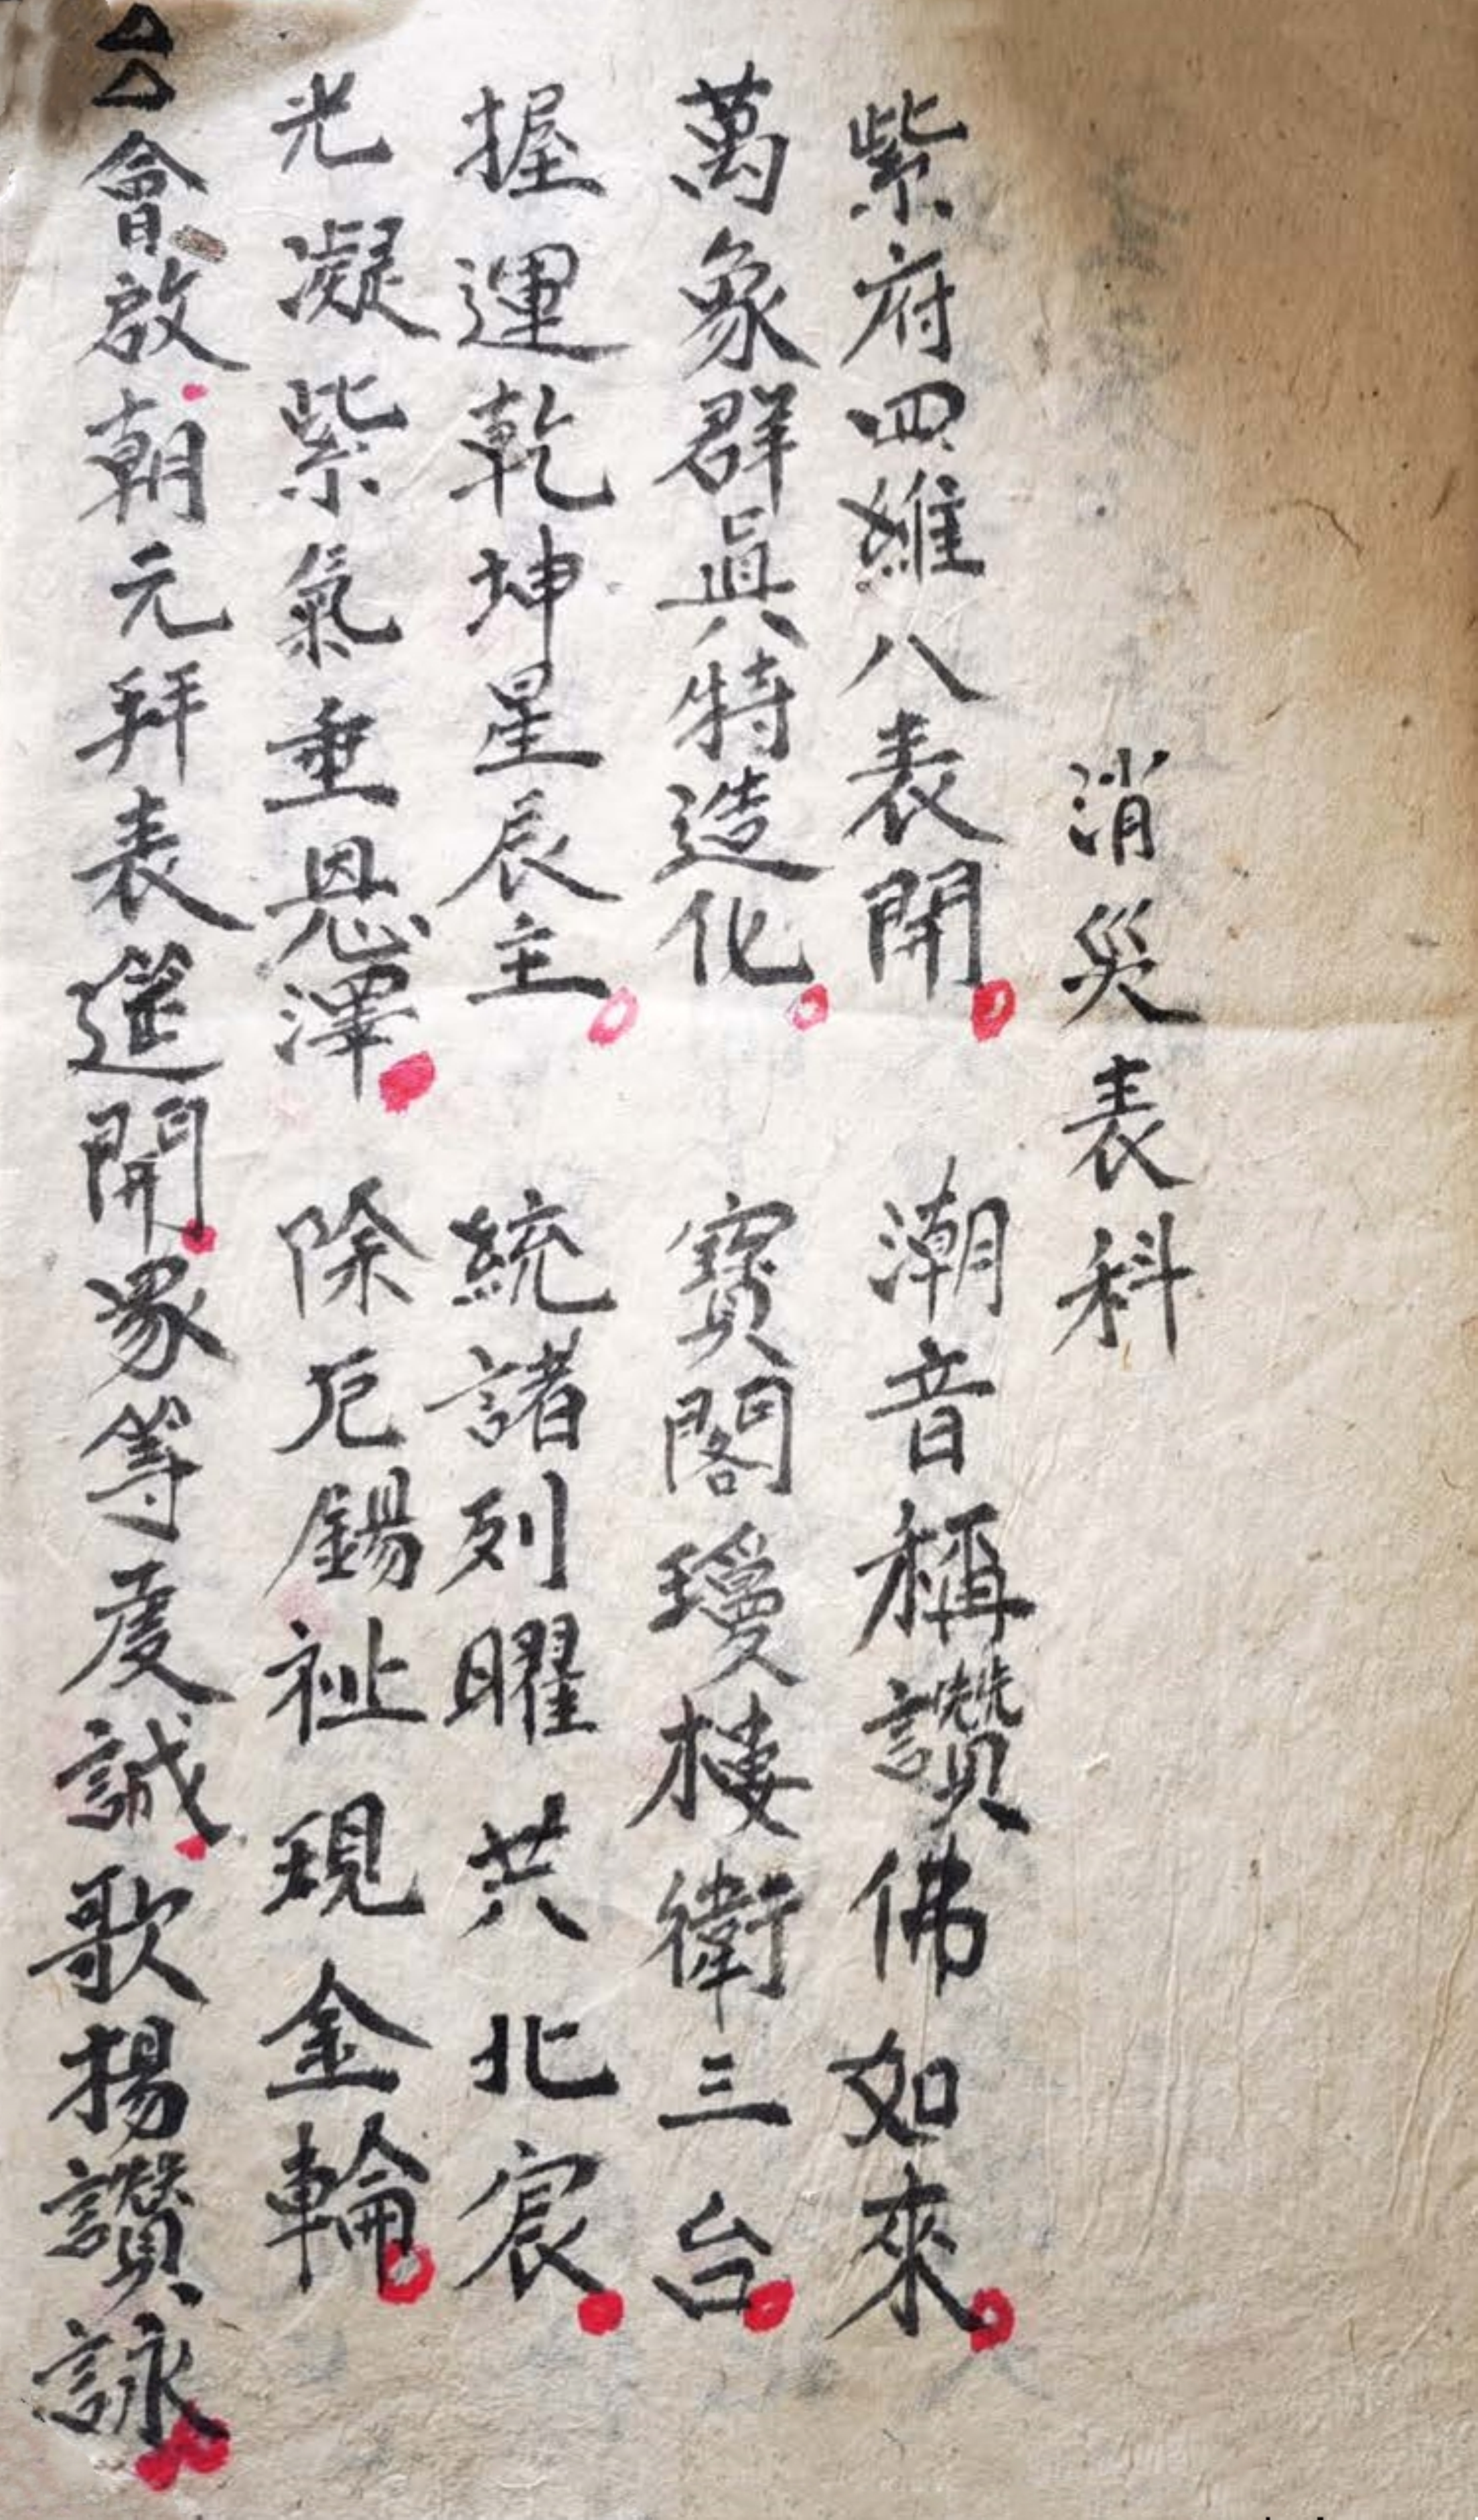 消災表科
紫府四維八表開。潮音稱讚佛如來。
萬象群眞特造化。寶閣瓊樓衛三台。
握運乾坤星辰主。統諸列曜共北宸。
光凝紫氣垂恩澤。除厄錫祉現金輪。
會啟朝元拜表筵開。眾等虔誠。歌揚讚詠。